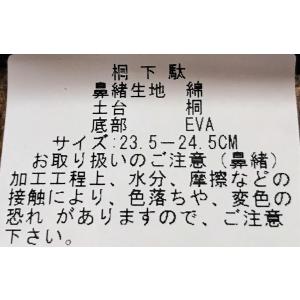 桐下駄
鼻緒生地 綿
土台 桐
底部 EVA
サイズ:23.5ー24.5CM
お取り扱いのご注意(鼻緒)
加工工程上、水分、摩擦などの
接触により、色落ちや、変色の
恐れ がありますので、ご注意
下さい。